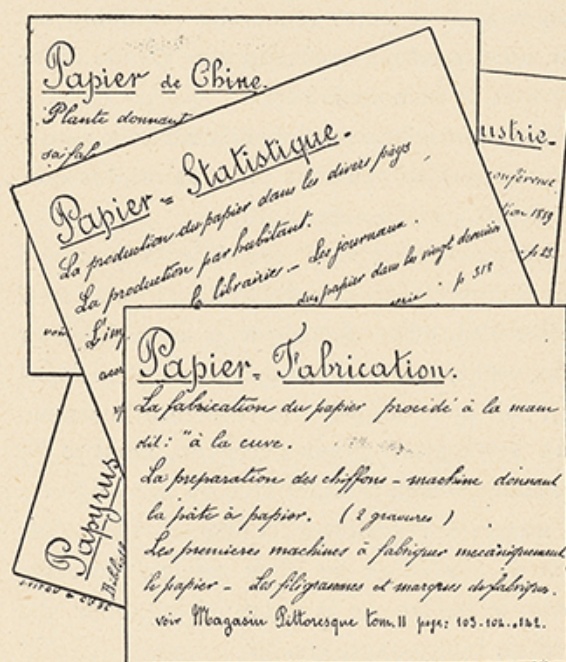 Papier de Chine.
Plante donnant
sa fab
ustrie.
conférence
tion 1889
p. 23.
Papier = Statistique.
La production du papier dans les divers pays
La production par habitant.
L'im la librairie - Les journaux.
du papier dans les vingt dernières
p 318
voir
Papier = Fabrication.
La fabrication du papier procédé à la main
dit: "à la cuve.
La préparation des chiffons - machine donnant
la pâte à papier. (2 gravures)
Les premières machines à fabriquer mécaniquement
le papier - Les filigrammes et marques de fabrique.
voir Magasin Pittoresque tom. 11 page: 103-104
Papyrus